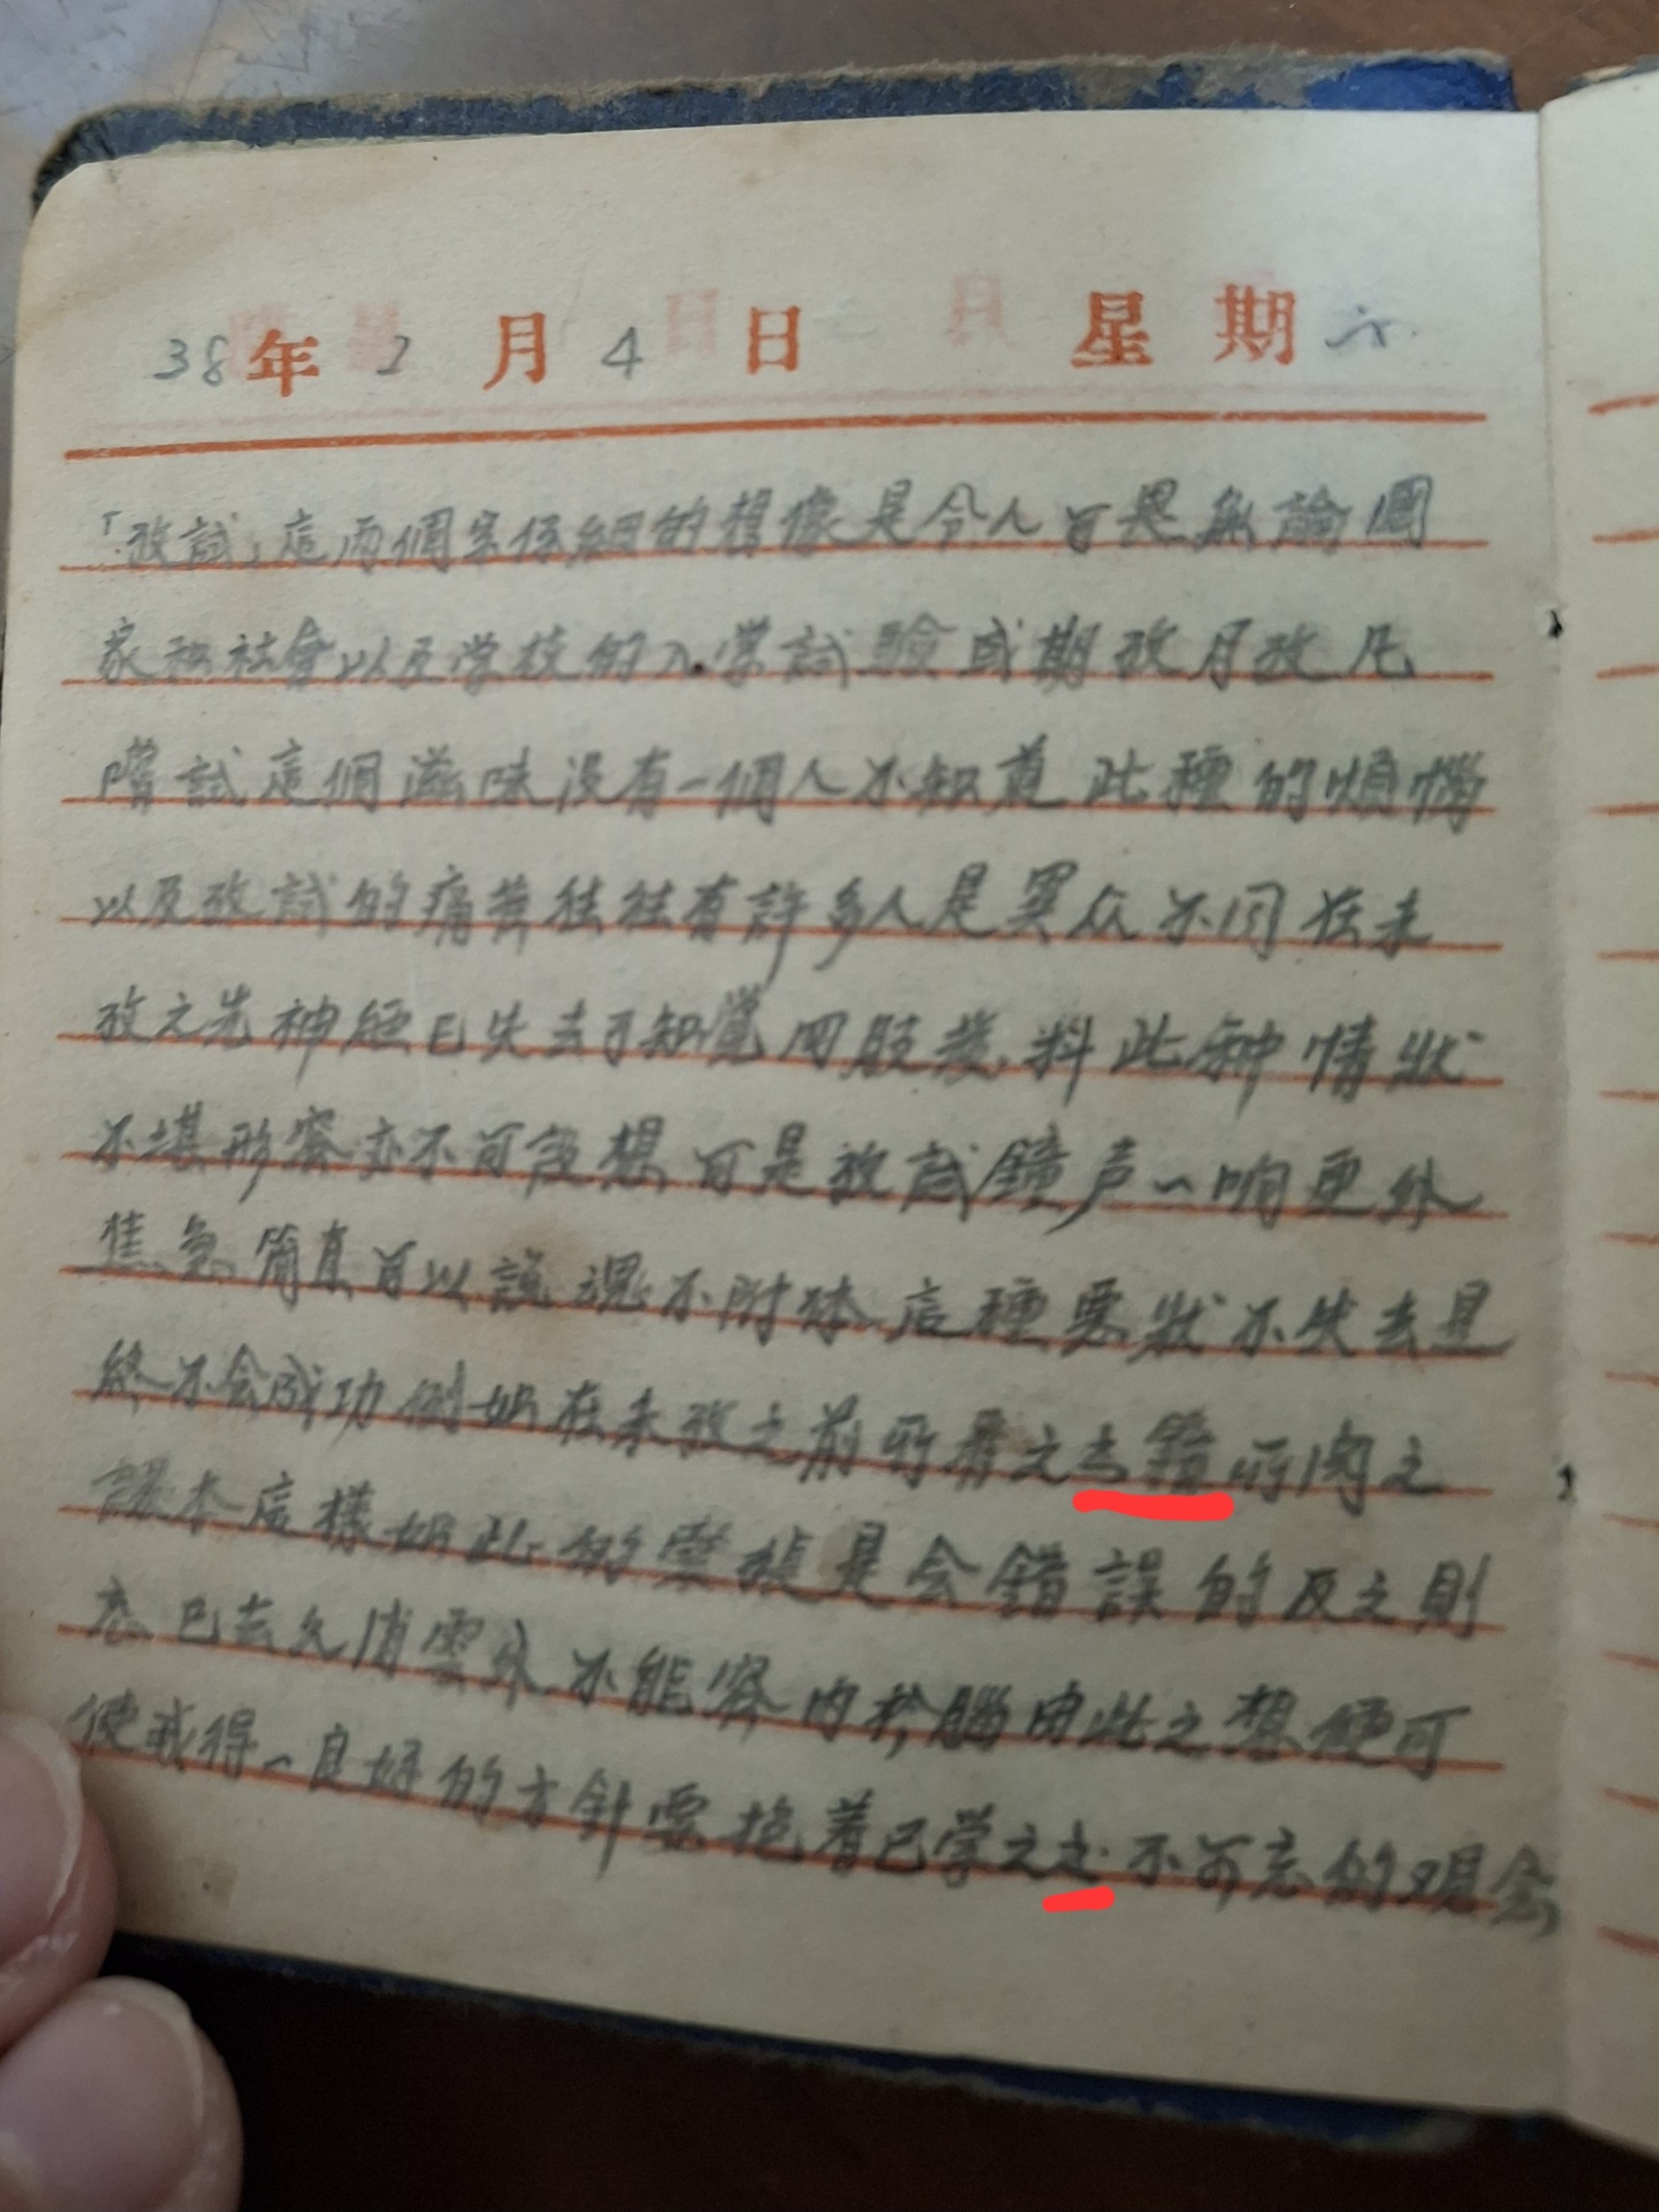 38年2月4日 星期六
「攷試」這兩個字仔細的想像是令人可畏無論國
家和社會以及学校的入学試驗或期攷月攷凡
嚐試這個滋味没有一個人不知道此種的煩惱
以及攷試的痛苦往往有許多人是異众不同在未
攷之先神經已失去了知覺四肢發抖此种情状
不堪形容亦不可設想可是攷試鐘声一响更外
焦急簡直可以說魂不附体這種要狀不失去是
終不会成功例如在未攷之前所看之去鐘所閱之
課本這樣如此的是会錯誤的反之則
忘已去久消雲外不能容内於腦由此之想便可
使我得一良好的方針要抱着已学之不可忘的观念